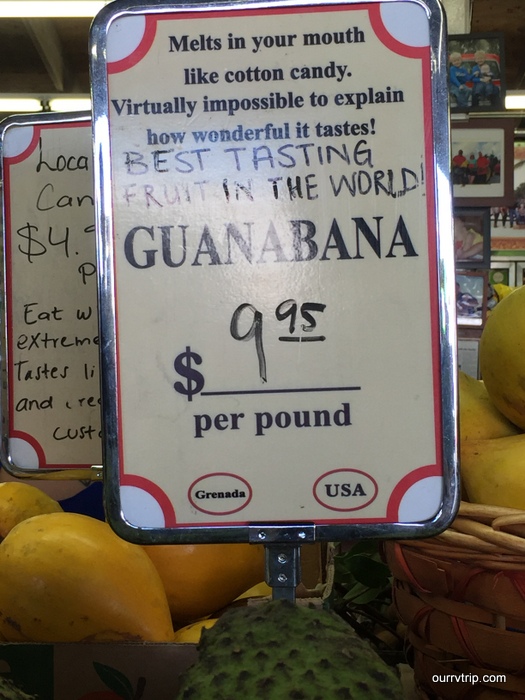 Melts in your mouth
like cotton candy.
Virtually impossible to explain
how wonderful it tastes!
BEST TASTING
FRUIT IN THE WORLD!
GUANABANA
9 95
$
per pound
Grenada
USA
Loca
Can
$4.9
P
Eat w
extreme
Tastes li
and
custo
ourrvtrip.com